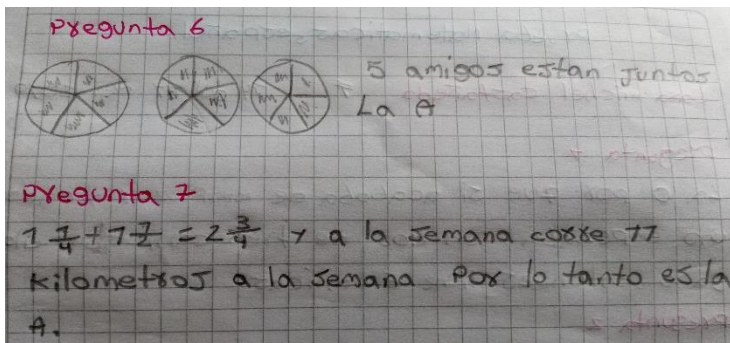 Pregunta 6
5 amigos estan juntos
La A
Pregunta 7
1 1/4 + 1 1/2 = 2 3/4 y a la semana corre 11
kilometros a la semana por lo tanto es la
A.